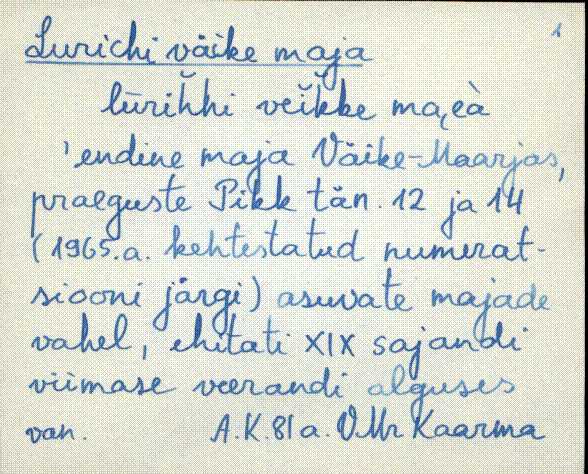 1
Lurichi väike maja
lūrĭh̆hi vĕĭkke ma̮eà
'endine maja Väike-Maarjas,
praeguste Pikk tän. 12 ja 14
(1965.a. kehtestatud numerat-
siooni järgi) asuvate majade
vahel, ehitati XIX sajandi
viimase veerandi alguses
van. A.K. 81 a. VMr Kaarma